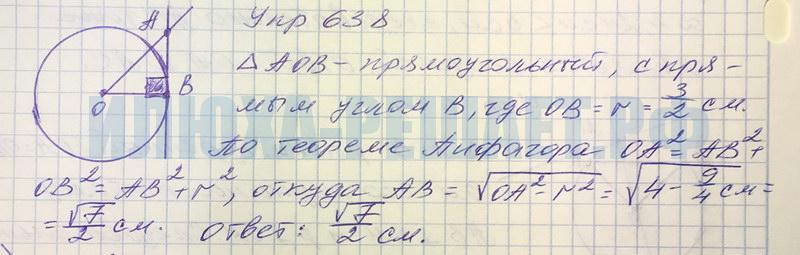 Упр 638
A
B
O
△AOB - прямоугольный, с пря-
мым углом B, где OB = r = 3/2 см.
По теореме Пифагора OA² = AB² +
OB² = AB² + r², откуда AB = √(OA² - r²) = √(4 - 9/4) см =
= √7/2 см. Ответ: √7/2 см.
ИЛЮХА-РЕШАЕТ.РФ